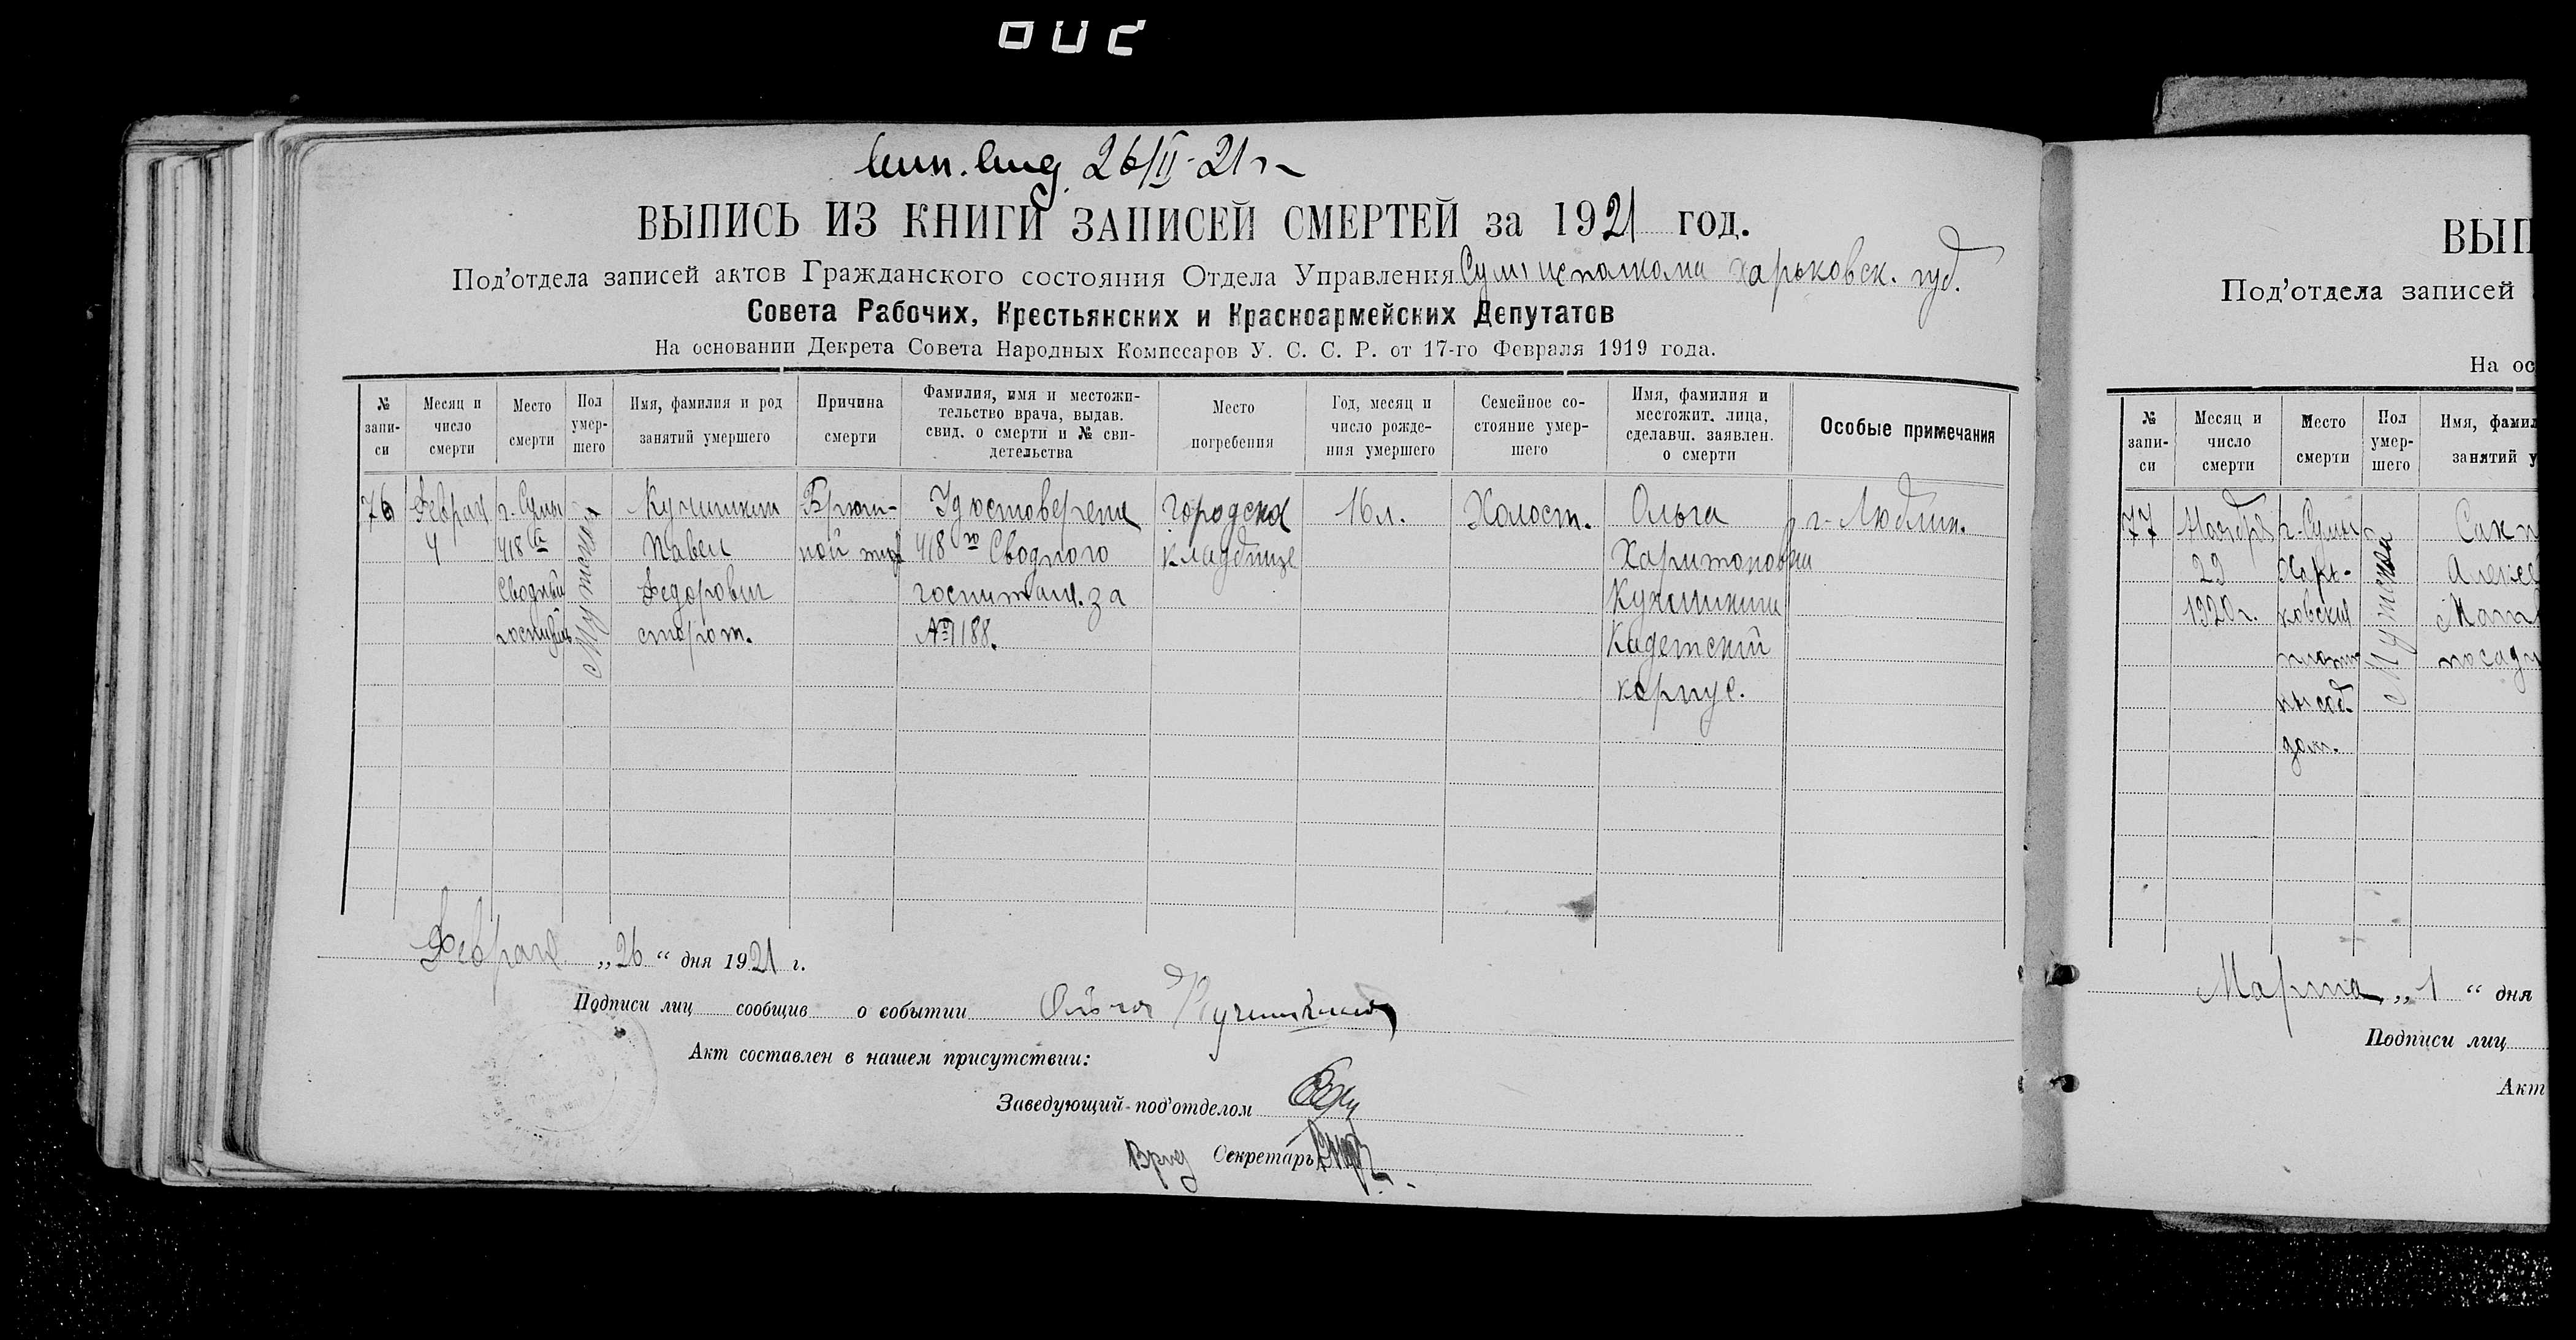 26/II-21 г.
ВЫПИСЬ ИЗ КНИГИ ЗАПИСЕЙ СМЕРТЕЙ за 1921 год.
Под’отдела записей актов Гражданского состояния Отдела Управления Сумисполкома Харьковск. губ.
Совета Рабочих, Крестьянских и Красноармейских Депутатов
На основании Декрета Совета Народных Комиссаров У. С. С. Р. от 17-го Февраля 1919 года.
№ запи-
си
Месяц и
число
смерти
Место
смерти
Пол
умер-
шего
Имя, фамилия и род
занятий умершего
Причина
смерти
Фамилия, имя и местожи-
тельство врача, выдав.
свид. о смерти и № сви-
детельства
Место
погребения
Год, месяц и
число рожде-
ния умершего
Семейное со-
стояние умер-
шего
Имя, фамилия и
местожит. лица,
сделавш. заявлен.
о смерти
Особые примечания
76
Феврал
4
г. Сумы
418 й
Сводный
госпиталь
Мужской
Кучишкин
Павел
Федорович
сторож.
Брюш-
ной тиф
Удостоверение
418го Сводного
госпиталя за
№ 1188.
Городское
кладбище
16 л.
Холост.
Ольга
Харитоновна
Кучишкина
Кадетский
корпус.
г. Люблин.
Февраля „26“ дня 1921 г.
Подписи лиц сообщив о событии Ольга Кучишкина
Акт составлен в нашем присутствии:
Заведующий под’отделом
Врид Секретарь
ВЫП
Под’отдела записей
На ос
№
запи-
си
Месяц и
число
смерти
Место
смерти
Пол
умер-
шего
Имя, фамил
занятий у
77
Ноября
29
1920 г.
г. Сумы
Харь-
ковская
дом.
Мужской
Алексе
Марта „1“ дня
Подписи лиц
Акт